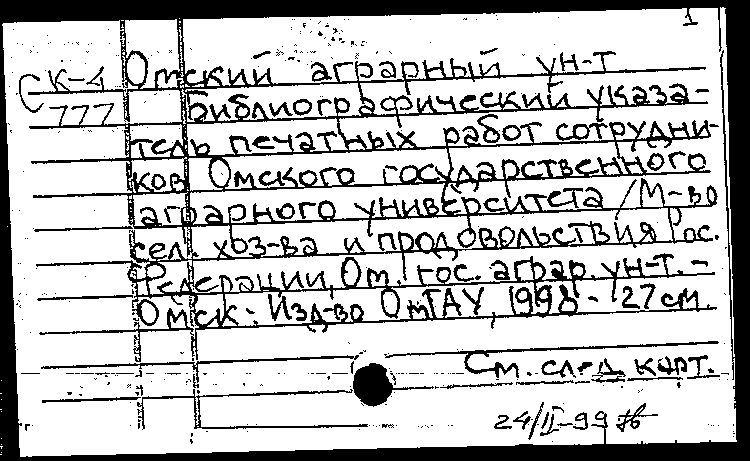 1
СК-4 Омский аграрный ун-т
777 Библиографический указа-
тель печатных работ сотрудни-
ков Омского государственного
аграрного университета / М-во
сел. хоз-ва и продовольствия Рос.
Федерации, Ом. гос. аграр. ун-т. -
Омск: Изд-во ОмГАУ, 1998 - 27 см.
См. след. карт.
24/II-99